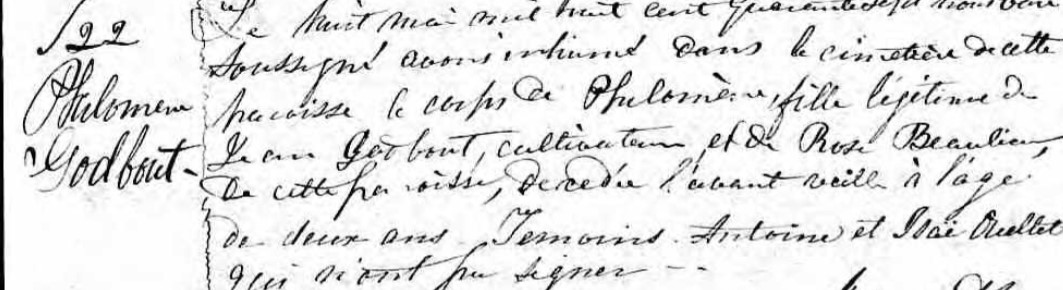 S22
Philomene
Godbout
Le huit mai mil huit cent quarante sept nous
soussigné avons inhumé dans le cimetière de cette
paroisse le corps de Philomène, fille légitime de
Jean Godbout, cultivateur, et de Rose Beaulieu,
de cette paroisse, decedée l'avant veille à l'age
de deux ans. Temoins Antoine et Isaï Ouellet
qui n'ont pu signer - -